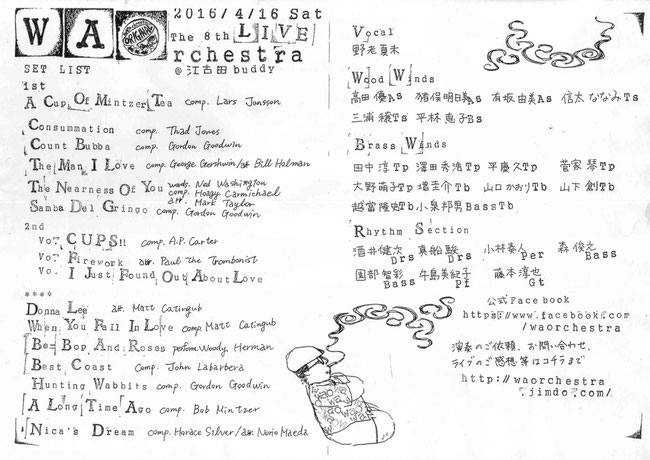 WAO
ORIGINAL
2016/4/16 Sat
The 8th LIVE
rchestra
@江古田 buddy
SET LIST
1st
A Cup Of Mintzer Tea comp. Lars Jansson
Consummation comp. Thad Jones
Count Bubba comp. Gordon Goodwin
The Man I Love comp. George Gershwin/arr. Bill Holman
The Nearness Of You words. Ned Washington
comp. Hoagy Carmichael
arr. Mark Taylor
Samba Del Gringo comp. Gordon Goodwin
2nd
Vo. CUPS!! comp. A.P. Carter
Vo. Firework arr. Paul the Trombonist
Vo. I Just Found Out About Love
****
Donna Lee arr. Matt Catingub
When You Fall In Love comp. Matt Catingub
Be-Bop And Roses perform. Woody Herman
Best Coast comp. John Labarbera
Hunting Wabbits comp. Gordon Goodwin
A Long Time Ago comp. Bob Mintzer
Nica's Dream comp. Horace Silver/arr. Norio Maeda
Vocal
野老真未
Wood Winds
高田 優As 猪俣明日美As 有坂由美As 信太ななみTs
三浦 穣Ts 平林恵子Bs
Brass Winds
田中 淳Tp 澤田秀浩Tp 平慶久Tp 菅家 琴Tp
大野萌子Tp 堤圭介Tb 山口かおりTb 山下 創Tb
越當隆蛾Tb 小泉邦男BassTb
Rhythm Section
酒井健次Drs 真船駿Drs 小林奏人Per 森俊之Bass
園部智彩Bass 午島美紀子Pf 藤本淳也Gt
公式Facebook
https://www.facebook.com
/waorchestra
演奏のご依頼、お問い合わせ、
ライブのご感想等はコチラまで
http://waorchestra
.jimdo.com/